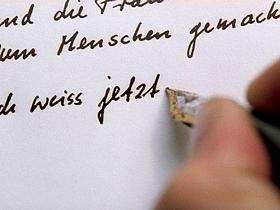 und die Frau
zum Menschen gemacht
ich weiss jetzt